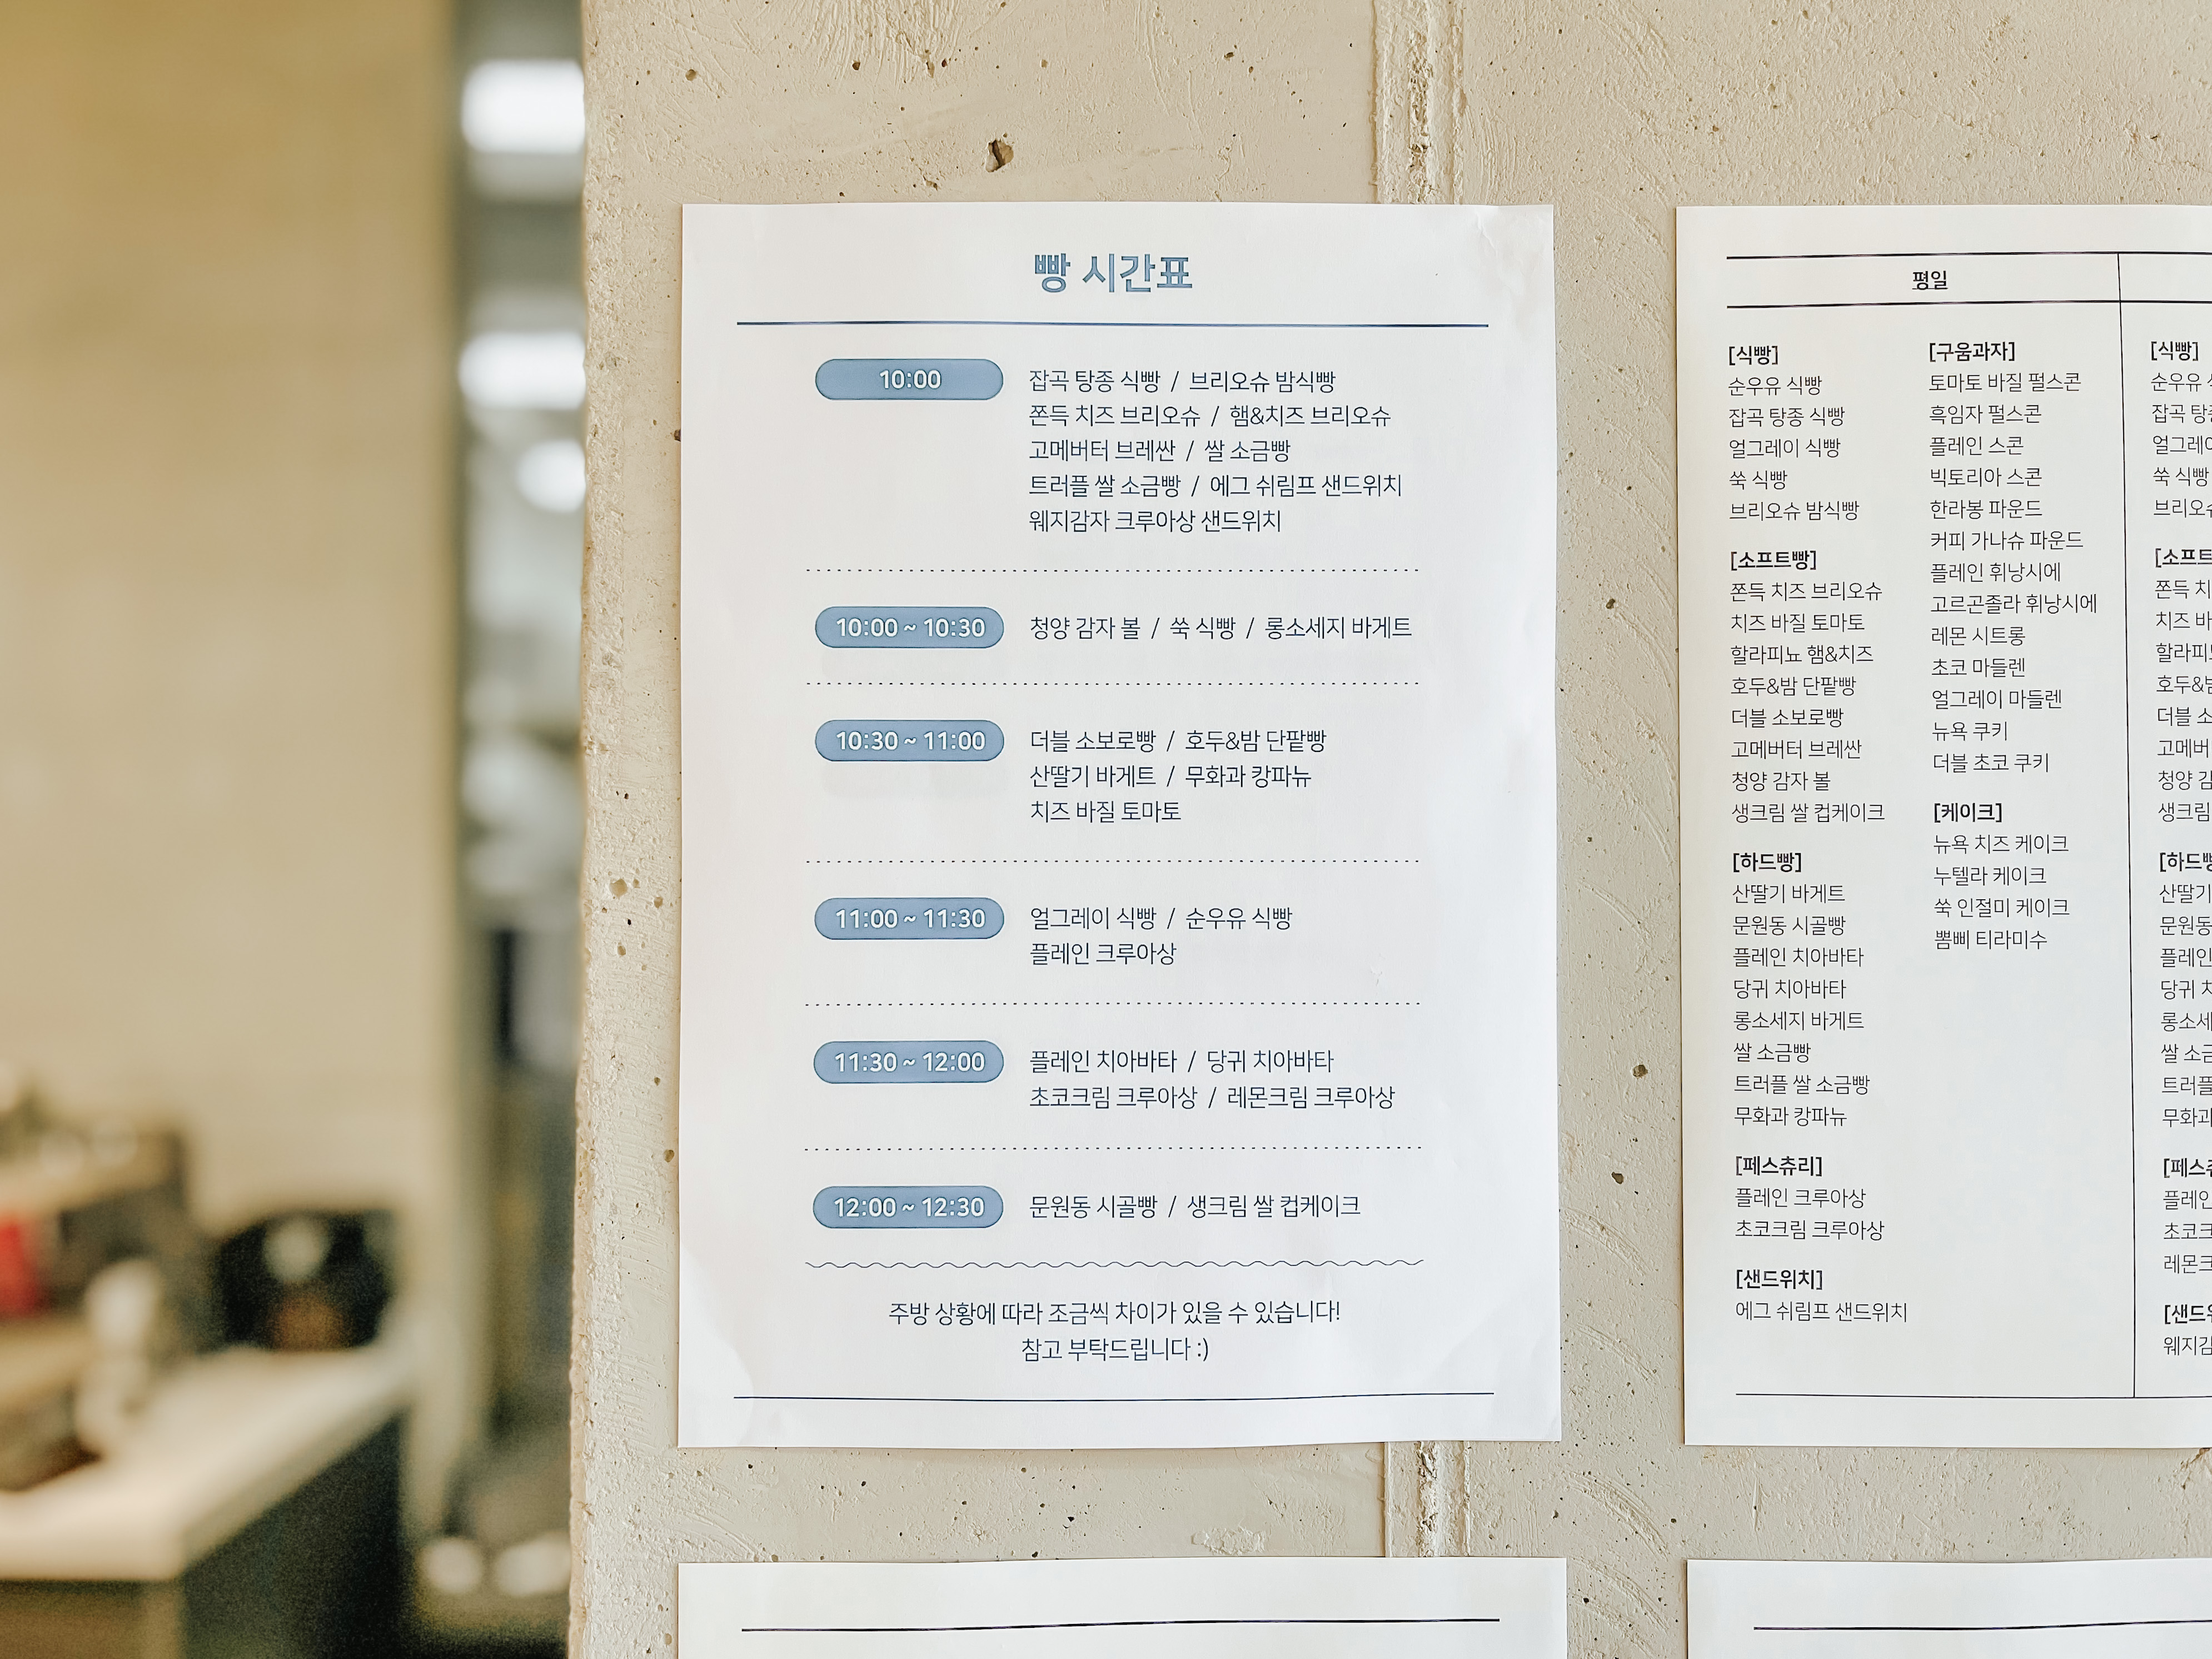 빵 시간표
10:00
잡곡 탕종 식빵 / 브리오슈 밤식빵
쫀득 치즈 브리오슈 / 햄&치즈 브리오슈
고메버터 브레싼 / 쌀 소금빵
트러플 쌀 소금빵 / 에그 쉬림프 샌드위치
웨지감자 크루아상 샌드위치
10:00 ~ 10:30
청양 감자 볼 / 쑥 식빵 / 롱소세지 바게트
10:30 ~ 11:00
더블 소보로빵 / 호두&밤 단팥빵
산딸기 바게트 / 무화과 캉파뉴
치즈 바질 토마토
11:00 ~ 11:30
얼그레이 식빵 / 순우유 식빵
플레인 크루아상
11:30 ~ 12:00
플레인 치아바타 / 당귀 치아바타
초코크림 크루아상 / 레몬크림 크루아상
12:00 ~ 12:30
문원동 시골빵 / 생크림 쌀 컵케이크
주방 상황에 따라 조금씩 차이가 있을 수 있습니다!
참고 부탁드립니다 :)
평일
[식빵]
순우유 식빵
잡곡 탕종 식빵
얼그레이 식빵
쑥 식빵
브리오슈 밤식빵
[소프트빵]
쫀득 치즈 브리오슈
치즈 바질 토마토
할라피뇨 햄&치즈
호두&밤 단팥빵
더블 소보로빵
고메버터 브레싼
청양 감자 볼
생크림 쌀 컵케이크
[하드빵]
산딸기 바게트
문원동 시골빵
플레인 치아바타
당귀 치아바타
롱소세지 바게트
쌀 소금빵
트러플 쌀 소금빵
무화과 캉파뉴
[페스츄리]
플레인 크루아상
초코크림 크루아상
[샌드위치]
에그 쉬림프 샌드위치
[구움과자]
토마토 바질 펄스콘
흑임자 펄스콘
플레인 스콘
빅토리아 스콘
한라봉 파운드
커피 가나슈 파운드
플레인 휘낭시에
고르곤졸라 휘낭시에
레몬 시트롱
초코 마들렌
얼그레이 마들렌
뉴욕 쿠키
더블 초코 쿠키
[케이크]
뉴욕 치즈 케이크
누텔라 케이크
쑥 인절미 케이크
뽐삐 티라미수
[식빵]
순우유
잡곡
쑥 식빵
청양
산딸기
당귀
쌀